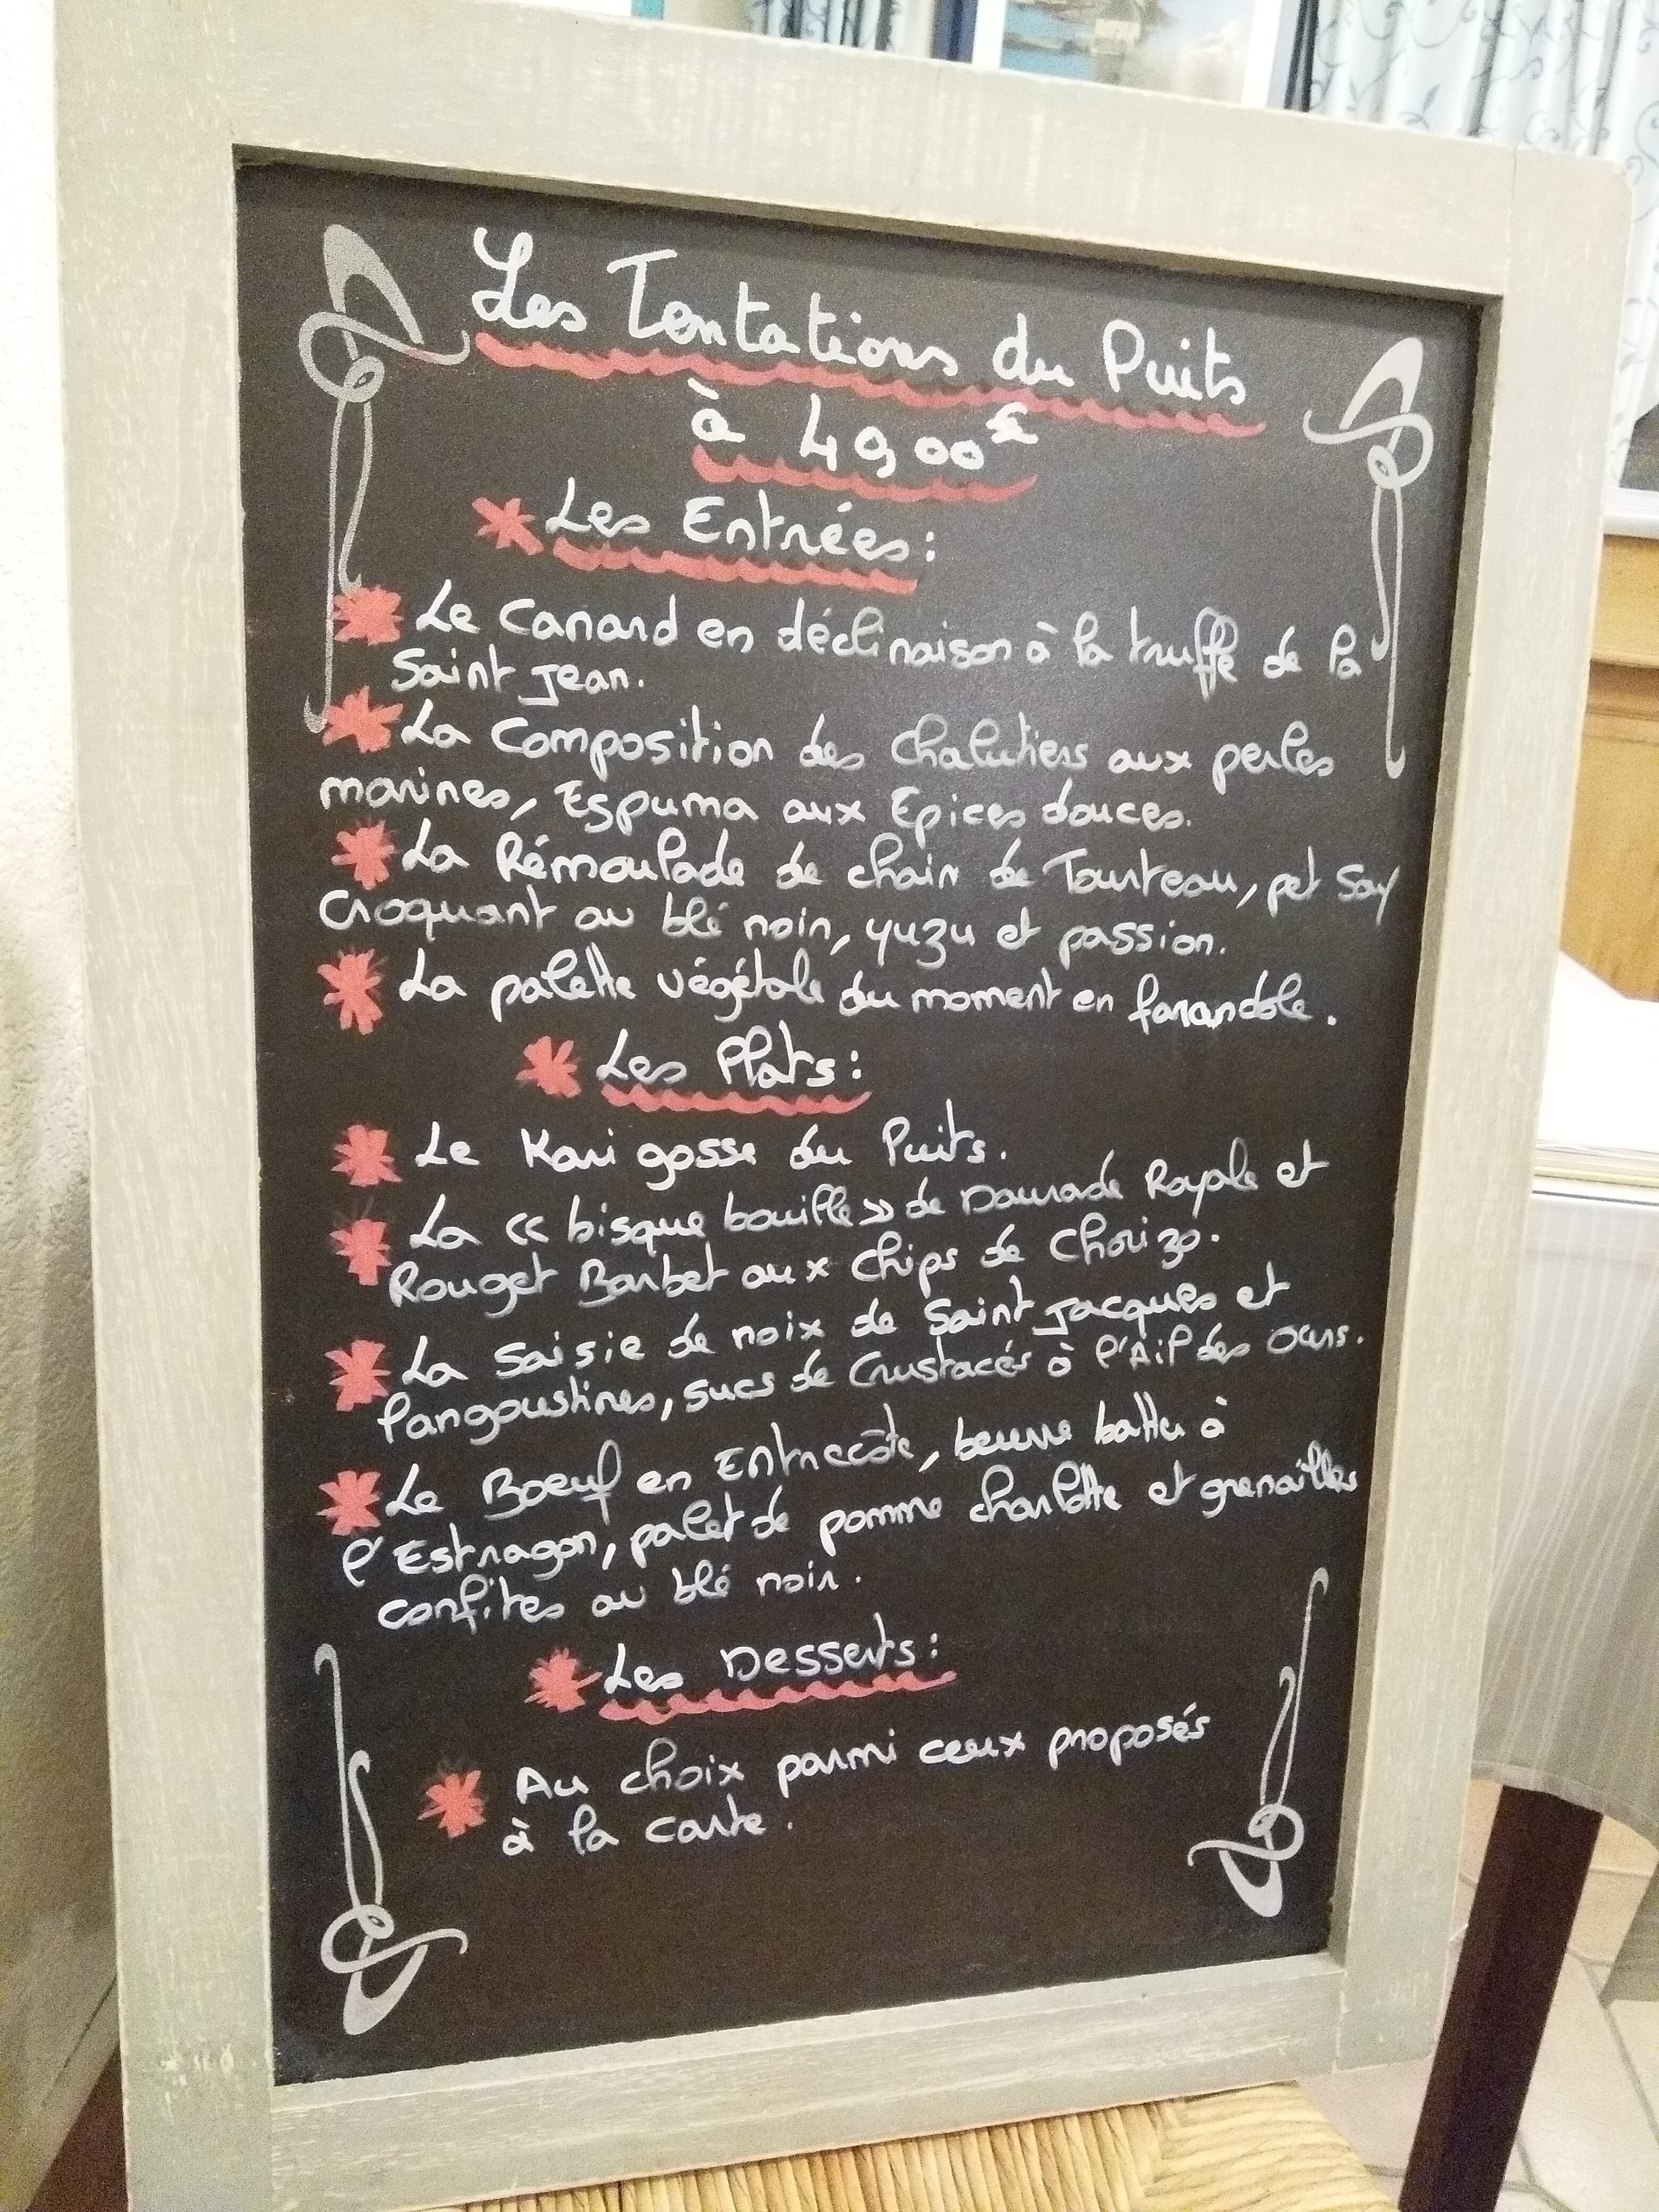 Les Tentations du Puits
à 49,00€
Les Entrées:
Le Canard en déclinaison à la truffe de la
Saint Jean.
La Composition des chalutiers aux perles
marines, Espuma aux Epices douces.
La Rémoulade de chair de Tourteau, pet Say
Croquant au blé noir, yuzu et passion.
La palette végétale du moment en farandole.
Les Plats:
Le Kari gosse du Puits.
La « bisque bouille » de Daurade Royale et
Rouget Barbet aux chips de Chorizo.
La Saisie de noix de Saint Jacques et
langoustines, sucs de Crustacés à l'Ail des Ours.
Le Boeuf en Entrecôte, beurre battu à
l'Estragon, palet de pomme charlotte et grenailles
confites au blé noir.
Les Desserts:
Au choix parmi ceux proposés
à la carte.